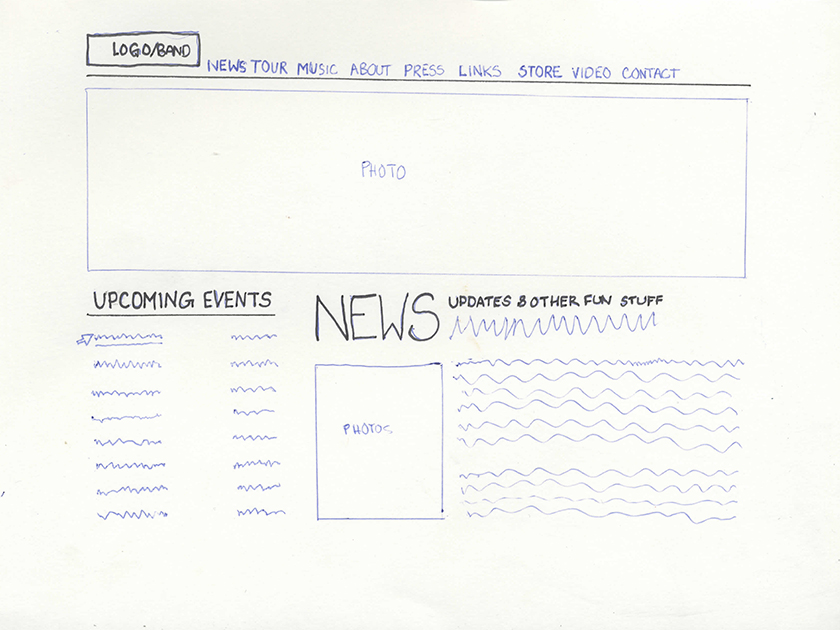 LOGO/BAND
NEWS TOUR MUSIC ABOUT PRESS LINKS STORE VIDEO CONTACT
PHOTO
UPCOMING EVENTS
NEWS
UPDATES & OTHER FUN STUFF
PHOTOS